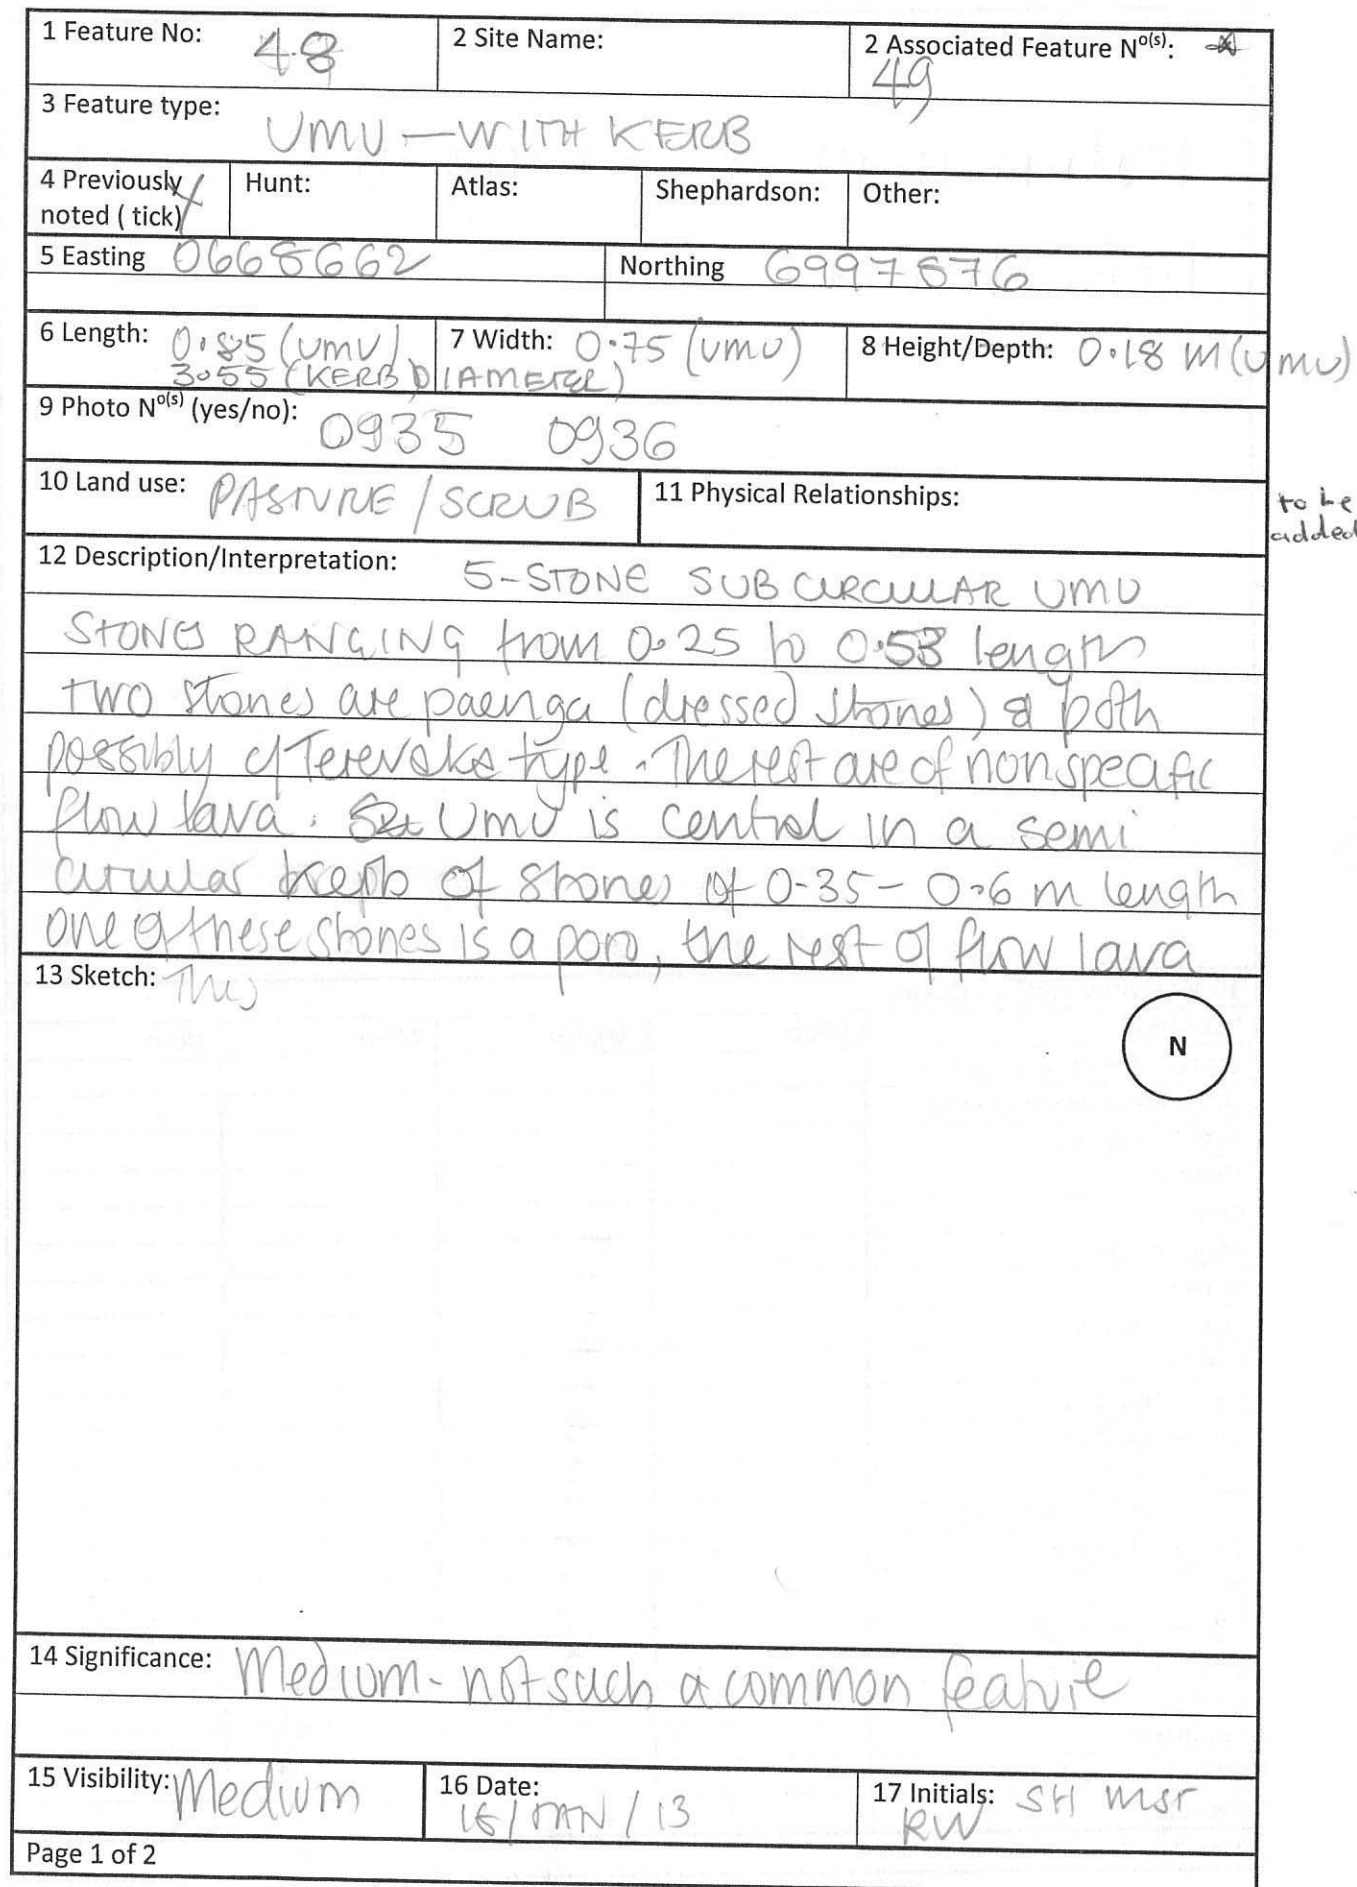 1 Feature No: 48
2 Site Name:
2 Associated Feature No(s):
49
3 Feature type: UMU – WITH KERB
4 Previously noted ( tick)
Hunt:
Atlas:
Shephardson:
Other:
5 Easting 0668662
Northing 6997876
6 Length: 0.85 (UMU)
3.055 (KERB DIAMETER)
7 Width: 0.75 (UMU)
8 Height/Depth: 0.18 M (UMU)
9 Photo No(s) (yes/no): 0935 0936
10 Land use: PASTURE / SCRUB
11 Physical Relationships:
to be
added
12 Description/Interpretation: 5-STONE SUB CIRCULAR UMU
STONES RANGING from 0.25 to 0.53 length
TWO stones are paenga (dressed stones) & both
possibly of Terevaka type. The rest are of non specific
flow lava. Umu is central in a semi
circular kerb of stones of 0-35 - 0.6 m length
one of these stones is a poro, the rest of flow lava
13 Sketch: This
N
14 Significance: Medium - not such a common feature
15 Visibility: Medium
16 Date:
/ JAN / 13
17 Initials: SH MSR
RW
Page 1 of 2